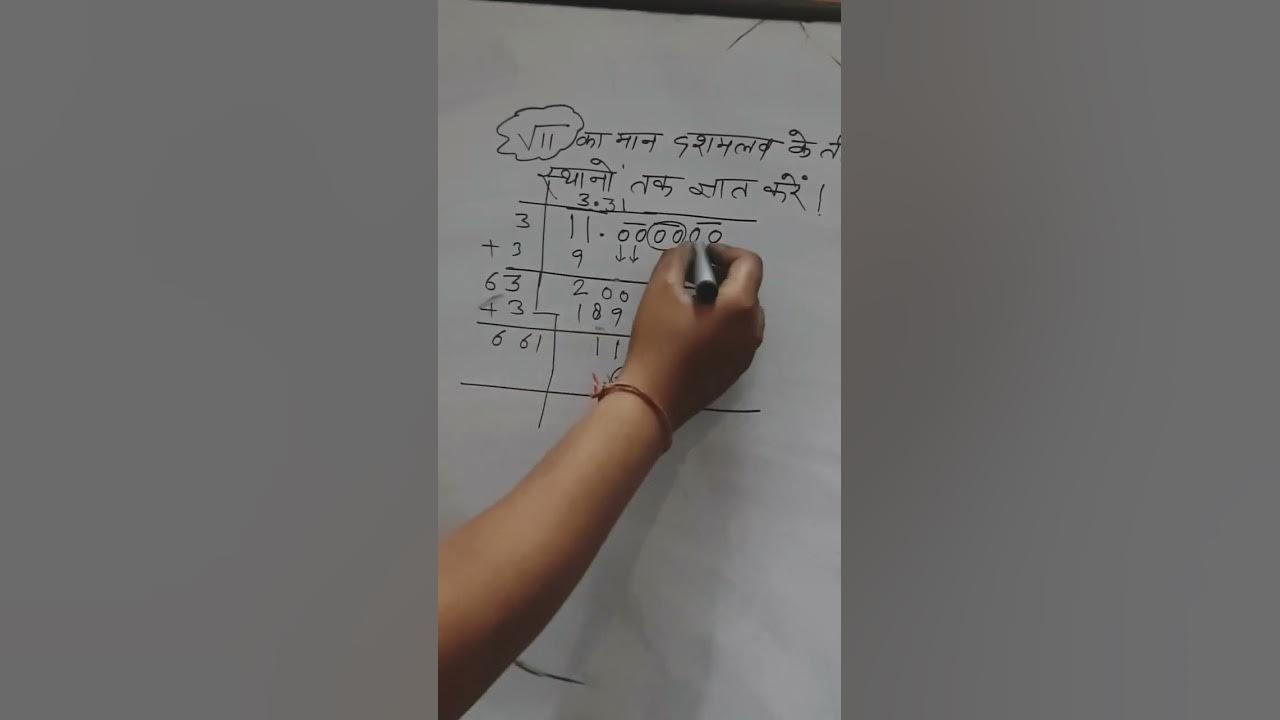 √11 का मान दशमलव के
स्थानों तक ज्ञात करें!
3.31
3 11.00 00 00
+ 3 9
63 200
+ 3 189
661 11